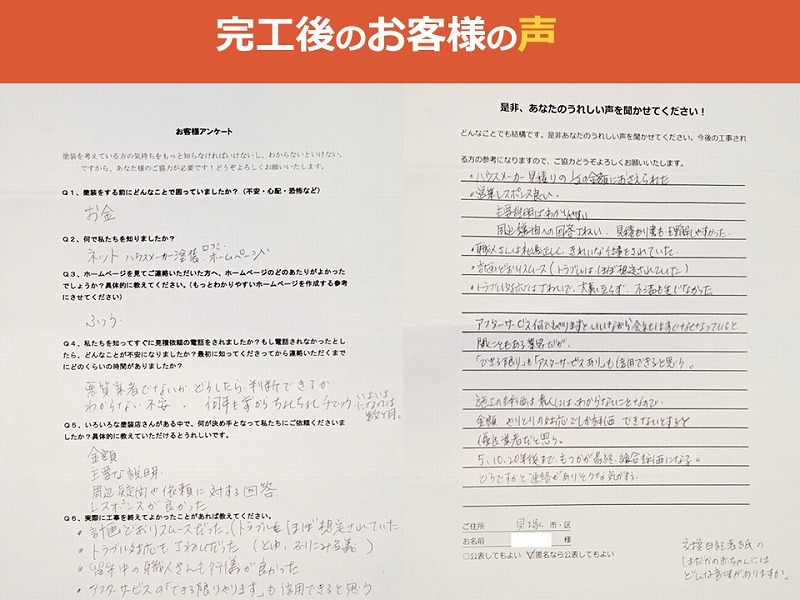 完工後のお客様の声
お客様アンケート
塗装を考えている方の気持ちをもっと知らなければいけないし、わからないといけない。
ですから、あなた様のご協力が必要です！どうぞよろしくお願いいたします。
Q1、塗装をする前にどんなことで困っていましたか？（不安・心配・恐怖など）
お金
Q2、何で私たちを知りましたか？
ネット ハウスメーカー塗装 口コミ ホームページ
Q3、ホームページを見てご連絡いただいた方へ、ホームページのどのあたりがよかった
でしょうか？具体的に教えてください。（もっとわかりやすいホームページを作成する参考
にさせてください）
ふつう
Q4、私たちを知ってすぐに見積依頼の電話をされましたか？もし電話されなかったとし
たら、どんなことが不安になりましたか？最初に知ってくださってから連絡いただくまで
にどのくらいの時間がありましたか？
悪質業者でないか どうしたら判断できるか
わからない不安。 何年も前からちょいちょい いよいよ
になっては
数ヶ月。
Q5、いろいろな塗装店さんがある中で、何が決め手となって私たちにご依頼くださいま
したか？具体的に教えていただけるとうれしいです。
金額
主要な説明
周辺疑問や依頼に対する回答
レスポンスが良かった
Q6、実際に工事を終えてよかったことがあれば教えてください。
・計画どおりスムーズだった。（トラブルもほぼ想定されていた
・トラブル対応もていねいだった
・留守中の職人さんも行儀が良かった
・アフターサービスの「できる限りやります」も信用できると思う
是非、あなたのうれしい声を聞かせてください！
どんなことでも結構です。是非あなたのうれしい声を聞かせてください。今後の工事され
る方の参考になりますので、ご協力どうぞよろしくお願いいたします。
・ハウスメーカー見積りの の金額におさえられた
・営業レスポンス良い
主要説明はわかりやすい
周辺疑問への回答ていねい 見積もり書も理解しやすかった
・職人さんは礼儀正しく、きれいな仕事をされていた
・計画どおりスムーズ（トラブルはほぼ想定されていた）
・トラブル対応はていねいで、大事に至らず、不満も生じなかった
アフターサービス何でもやりますと、いいながら会社もはすぐなくなっていると
聞くこともある業界だが、
「できる限り」も「アフターサービスあり」も信用できると思う。
施工の評価は素人にはわからないことなので、
金額 やりとりの対応でしか評価できないとすると
優良業者だと思う。
5、10、20年後までもつかが最終、総合評価になる。
どうですかと連絡がありそうな気がする。
ご住所 貝塚 市・区
お名前 様
□公表してもよい ☑匿名なら公表してもよい
応援日記表紙の
はだかの赤ちゃんには
どんな意味がありますか。